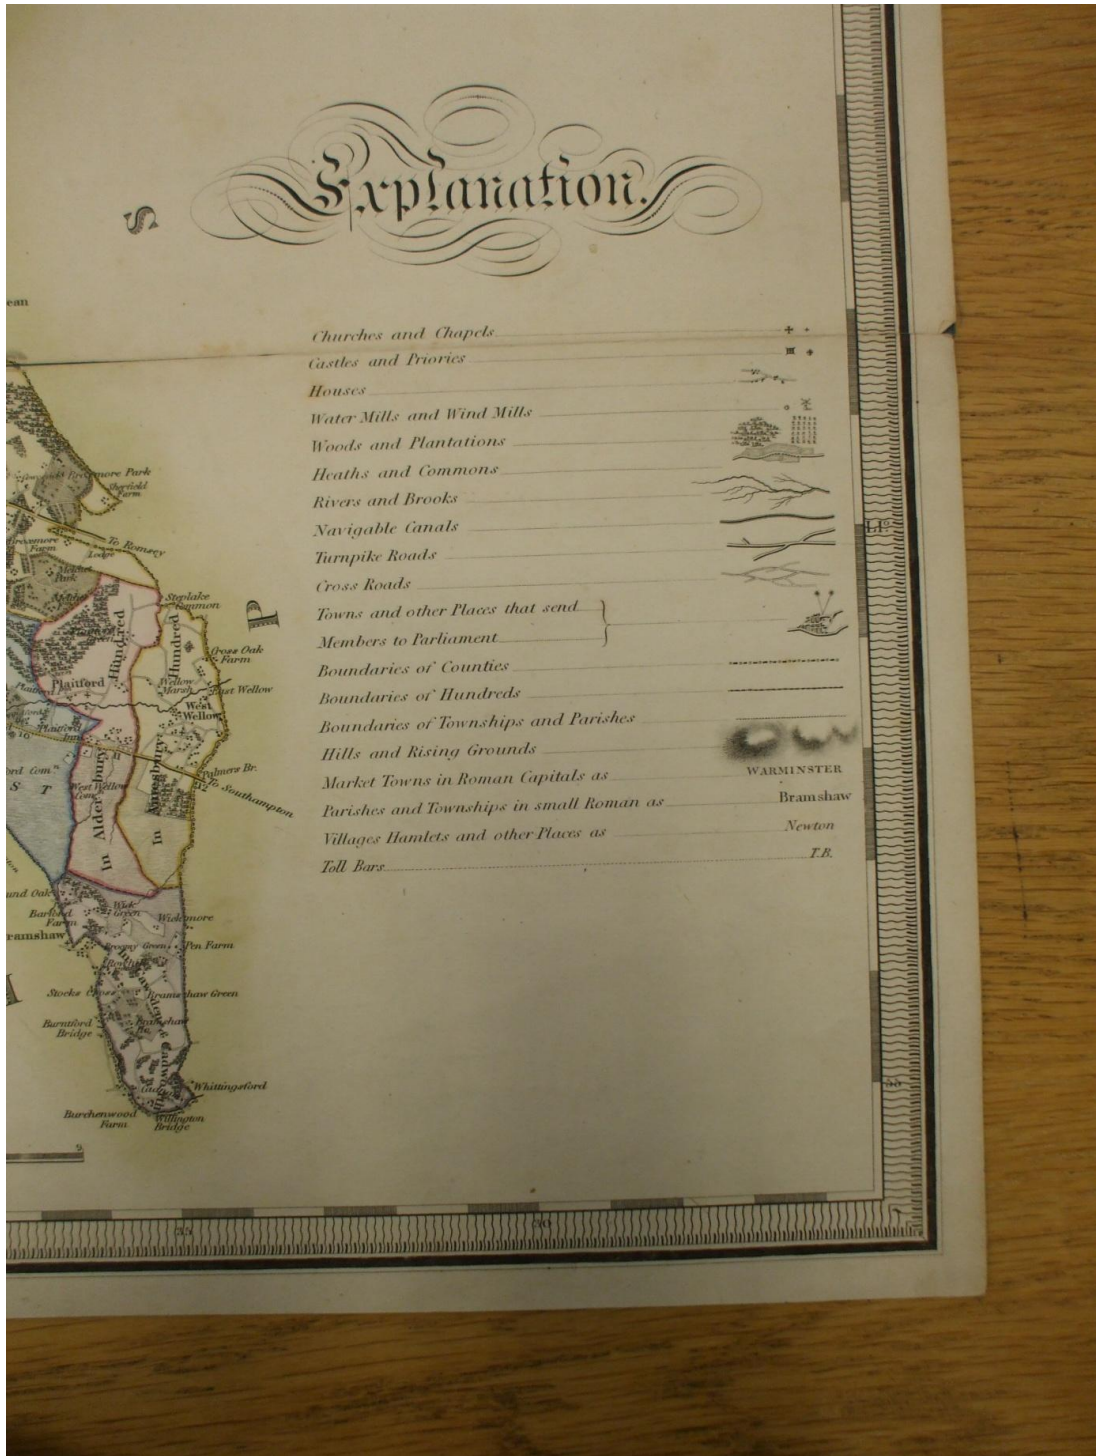 Explanation.
S
Churches and Chapels
Castles and Priories
Houses
Water Mills and Wind Mills
Woods and Plantations
Heaths and Commons
Rivers and Brooks
Navigable Canals
Turnpike Roads
Cross Roads
Towns and other Places that send
Members to Parliament
Boundaries of Counties
Boundaries of Hundreds
Boundaries of Townships and Parishes
Hills and Rising Grounds
Market Towns in Roman Capitals as WARMINSTER
Parishes and Townships in small Roman as Bramshaw
Villages Hamlets and other Places as Newton
Toll Bars T.B.
ean
Park
Sherfield
Farm
Farm
To Romsey
Lodge
Park
Steplake
Common
P
Hundred
Hundred
Cross Oak
Farm
Plaitford
Wellow
Marsh
East Wellow
West
Wellow
Palmers Br.
To Southampton
ord Com.n
S T
West Wellow
Com.n
In Alderbury
In Amesbury
und Oak
Barford
Farm
ramshaw
Wick
Green
Wickmore
Pen Farm
Stocks Cross
Bramshaw Green
Burntford
Bridge
Bramshaw
Whittingsford
Burchenwood
Farm
Willington
Bridge
35
30
55